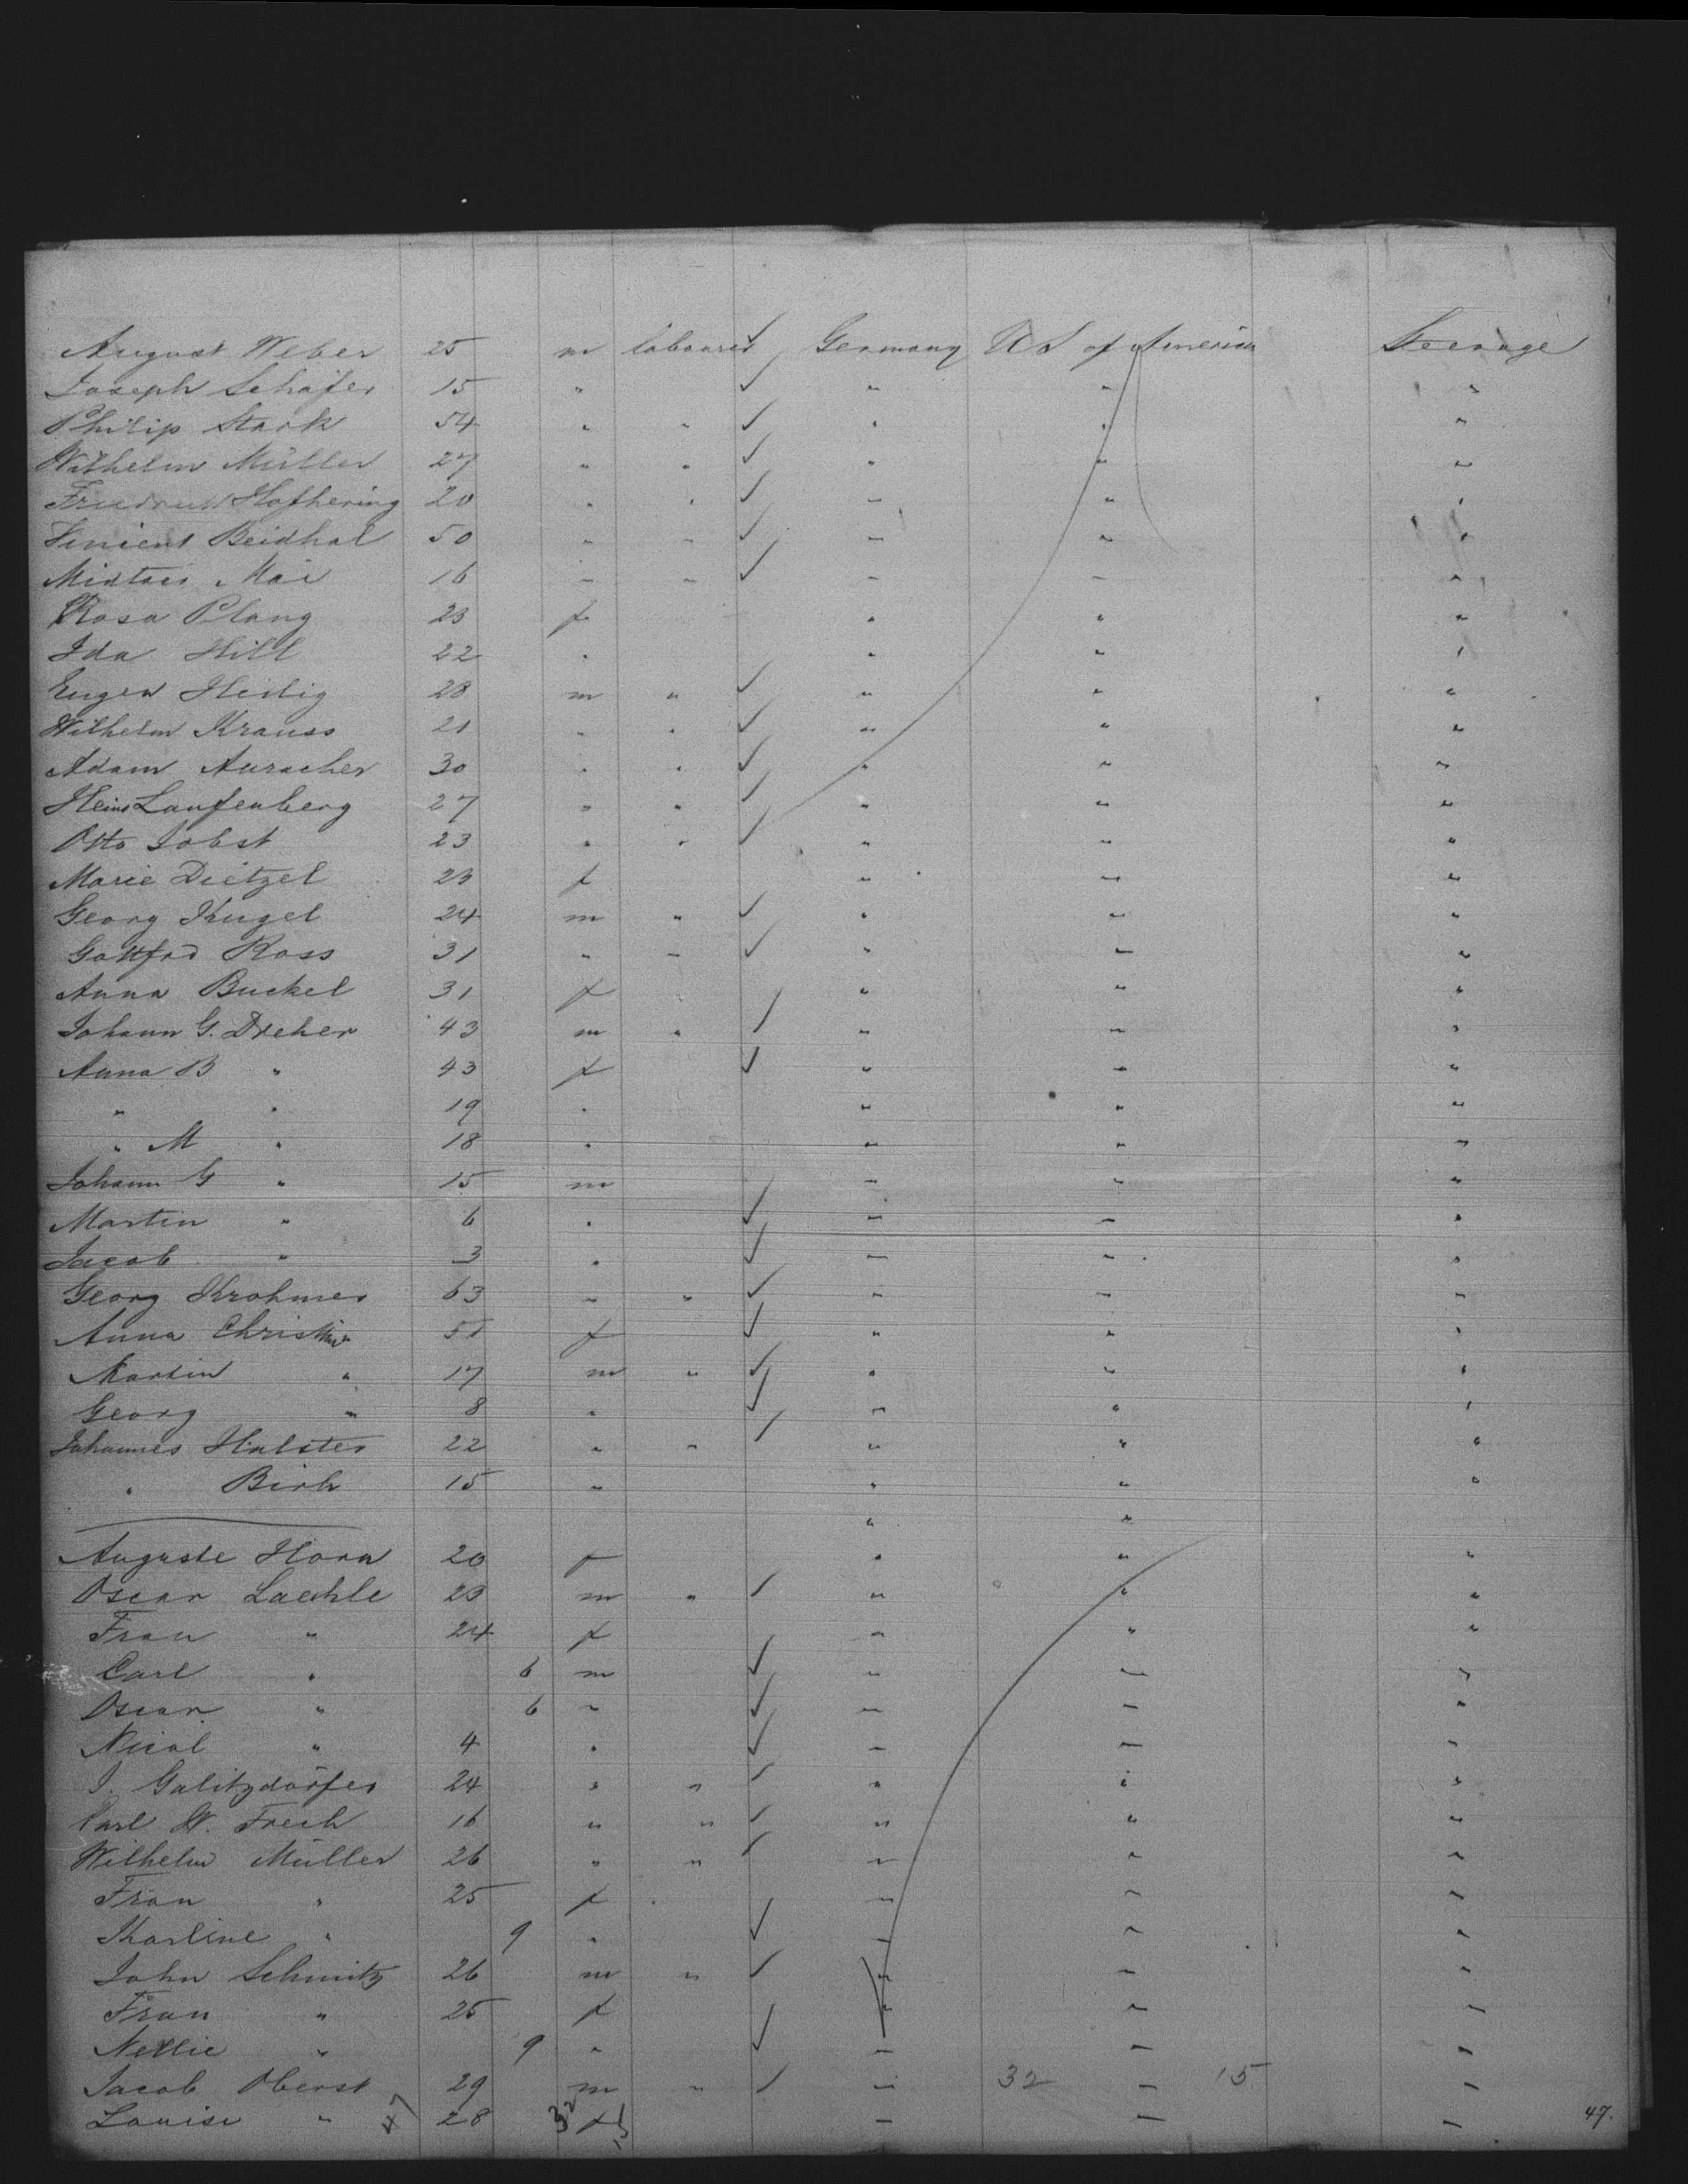 August Weber 25 m labourer ✓ Germany U S of America Steerage
Joseph Schäfer 15 " ✓ " " "
Philip Stark 54 " " ✓ " " "
Wilhelm Müller 27 " " ✓ " " "
Friedrich Hofhering 20 " " ✓ " " "
Vincent Beidhal 50 " " ✓ " " "
Mai 16 " " ✓ " " "
Rosa Plang 23 f " " "
Ida Hill 22 " " " "
Eugen Heilig 28 m " ✓ " " "
Wilhelm Krauss 21 " " ✓ " " "
Adam Auracher 30 " " ✓ " " "
Heins Laufenberg 27 " " ✓ " " "
Otto Jobst 23 " " ✓ " " "
Marie Dietzel 23 f " " "
Georg Kugel 24 m " ✓ " " "
Gottfrd Ross 31 " " ✓ " " "
Anna Buckel 31 f " " " "
Johann G. Dreher 43 m " ✓ " " "
Anna B " 43 f ✓ " " "
" " 19 " " " "
" M " 18 " " " "
Johann G " 15 m " " "
Martin " 6 " ✓ " " "
Jacob " 3 " ✓ " " "
Georg Krohmer 63 " " ✓ " " "
Anna Christine 51 f ✓ " " "
Martin " 17 m " ✓ " " "
Georg " 8 " ✓ " " "
Johannes Halster 22 " " ✓ " " "
" Birk 15 " " " "
" "
Auguste Horn 20 f " " "
Oscar Laechle 23 m " ✓ " " "
Frau " 24 f " " "
Carl " 6 m ✓ " " "
Oscar " 6 " ✓ " " "
Nicol " 4 " ✓ " " "
J. Galitzdörfer 24 " " ✓ " " "
Carl W. Frech 16 " " ✓ " " "
Wilhelm Müller 26 " " ✓ " " "
Frau " 25 f " " "
Karline " 9 " ✓ " " "
John Schmitz 26 m " ✓ " " "
Frau " 25 f " " "
Nellie " 9 " ✓ " " "
Jacob Oberst 29 m " ✓ " 32 " 15 "
Louise " 47 28 32 f 15 " " " 47.